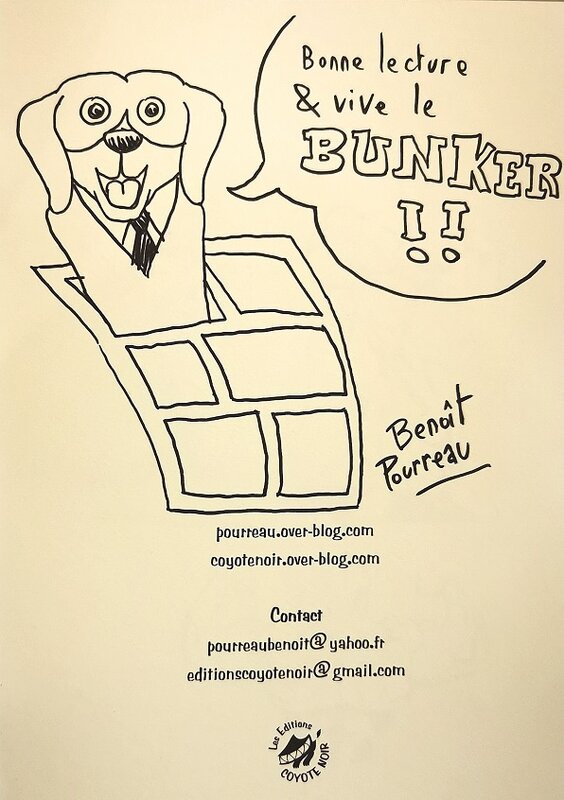 Bonne lecture
& vive le
BUNKER
!!
Benoît
Pourreau
pourreau.over-blog.com
coyotenoir.over-blog.com
Contact
pourreaubenoit@yahoo.fr
editionscoyotenoir@gmail.com
Les Editions
COYOTE NOIR